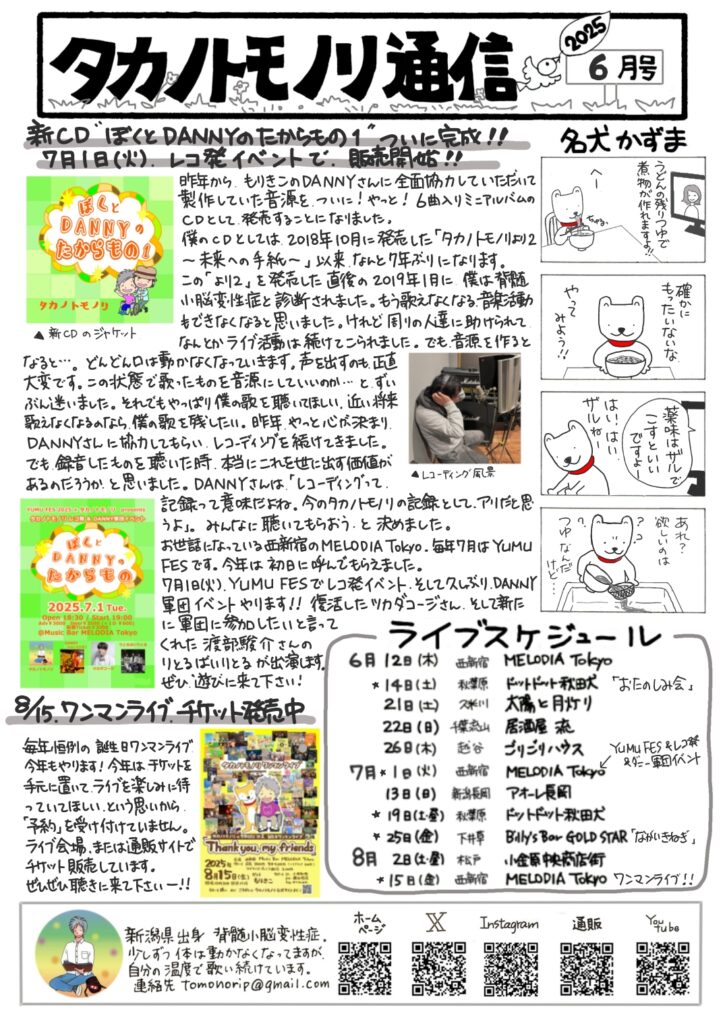 タカノトモノリ通信
2025
6月号
新CD"ぼくとDANNYのたからもの1"ついに完成!!
7月1日(火)、レコ発イベントで、販売開始!!
ぼくと
DANNYの
たからもの1
タカノトモノリ
▲新CDのジャケット
昨年から、もりきこのDANNYさんに全面協力していただいて
製作していた音源を、ついに!やっと!6曲入りミニアルバムの
CDとして、発売することになりました。
僕のCDとしては、2018年10月に発売した「タカノトモノリより2
〜未来への手紙〜」以来、なんと7年ぶりになります。
この「より2」を発売した直後の2019年1月に、僕は脊髄
小脳変性症と診断されました。もう歌えなくなる、音楽活動
もできなくなると思いました。けれど、周りの人達に助けられて、
なんとかライブ活動は続けてこられました。でも、音源を作ると
なると…。どんどん口は動かなくなっていきます。声を出すのも正直
大変です。この状態で歌ったものを音源にしていいのか…と、ずい
ぶん迷いました。それでもやっぱり僕の歌を聴いてほしい、近い将来
歌えなくなるのなら、僕の歌を残したい。昨年、やっと心が決まり、
DANNYさんに協力してもらい、レコーディングを続けてきました。
でも、録音したものを聴いた時、本当にこれを世に出す価値が
あるのだろうか、と思いました。DANNYさんは、「レコーディングって、
記録って意味だよね。今のタカノトモノリの記録として、アリだと思
うよ」。みんなに聴いてもらおう、と決めました。
▲レコーディング風景
お世話になっている西新宿のMELODIA Tokyo、毎年7月はYUMU
FESです。今年は、初日に呼んでもらえました。
7月1日(火)、YUMU FESでレコ発イベント、そして久しぶり、DANNY
軍団イベントやります!!復活したツカダコージさん、そして新た
に軍団に参加したいと言って
くれた渡部駿介さんの
りとるばいりとるが出演します。
ぜひ、遊びに来て下さい!
YUMU FES 2025 × タカノトモノリ presents
タカノトモノリ レコ発 & DANNY軍団イベント
ぼくと
DANNYの
たからもの
2025.7.1 Tue.
Open 18:30 / Start 19:00
@Music Bar MELODIA Tokyo
8/15、ワンマンライブ、チケット発売中
毎年恒例の誕生日ワンマンライブ
今年もやります!今年は、チケットを
手元に置いて、ライブを楽しみに待
っていてほしい、という思いから、
「予約」を受け付けていません。
ライブ会場、または通販サイトで
チケット販売しています。
ぜひぜひ聴きに来て下さいー!!
タカノトモノリワンマンライブ
Thank you, my friends
2025年
8月15日(金)
名犬かずま
うどんの残りつゆで
煮物が作れますよ!!
へー
確かに
もったいないな
やって
みよう!!
薬味はザルで
こすといい
ですよー
はいはい
ザルねー
あれ?
欲しいのは
つゆなんだ
けど…
?
?
ライブスケジュール
6月12日(木) 西新宿 MELODIA Tokyo
*14日(土) 秋葉原 ドットドット秋田犬「おたのしみ会」
21日(土) 久米川 太陽と月灯り
22日(日) 千葉流山 居酒屋 流
26日(木) 越谷 ゴリゴリハウス
7月*1日(火) 西新宿 MELODIA Tokyo
YUMU FES&レコ発
&ダニー軍団イベント
13日(日) 新潟長岡 アオーレ長岡
*19日(土・昼) 秋葉原 ドットドット秋田犬
*25日(金) 下井草 Billy's Bar GOLD STAR「ながいきねぎ」
8月 2日(土・昼) 松戸 小金原中央商店街
*15日(金) 西新宿 MELODIA Tokyo ワンマンライブ!!
新潟県出身 脊髄小脳変性症。
少しずつ体は動かなくなってますが、
自分の温度で歌い続けています。
連絡先 tomonorip@gmail.com
ホーム
ページ
X
Instagram
通販
YouTube